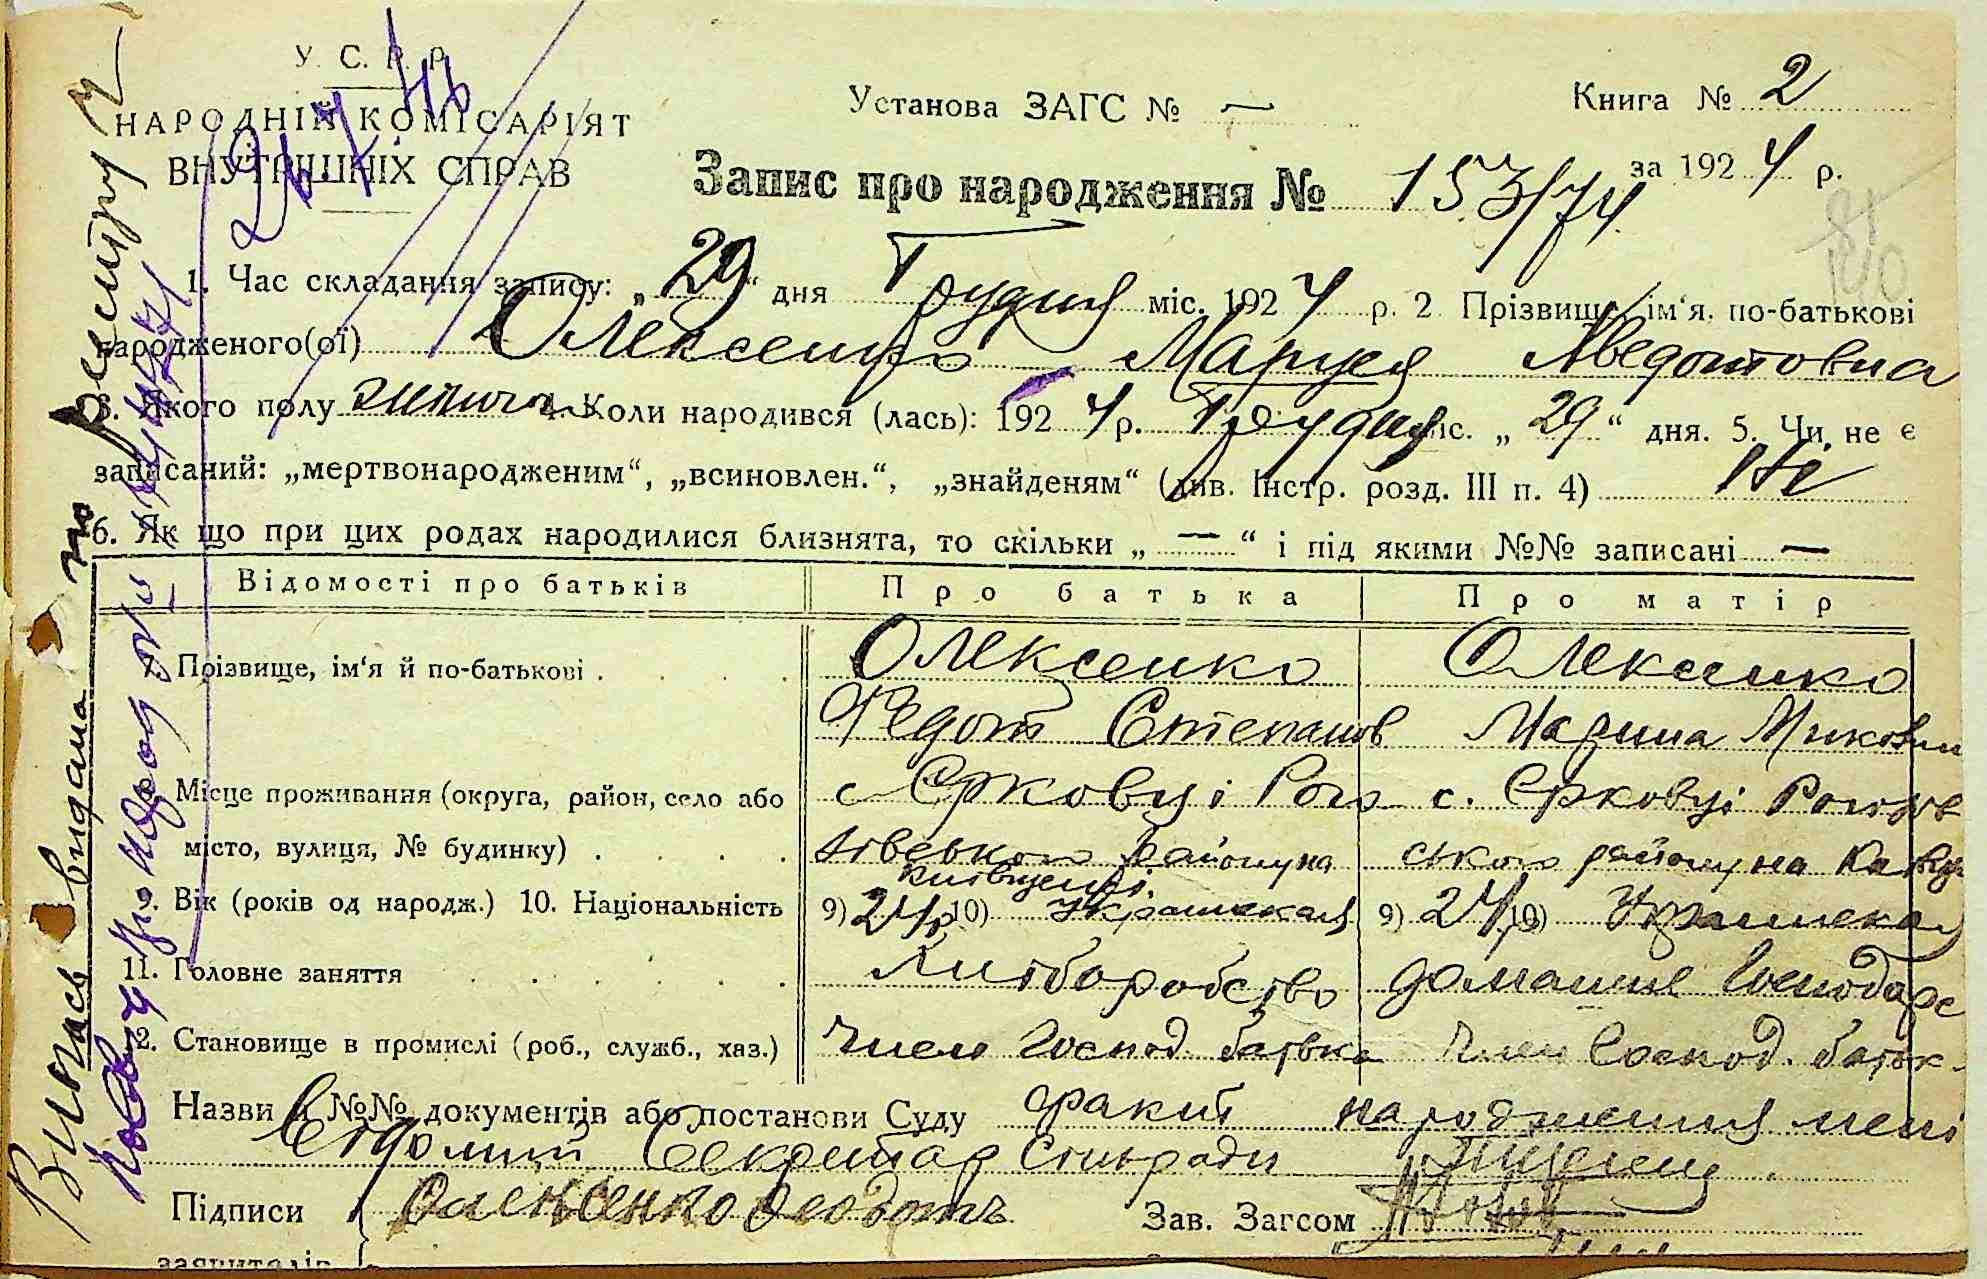 У. С. Р. Р.
НАРОДНІЙ КОМІСАРІЯТ
ВНУТРІШНІХ СПРАВ
Установа ЗАГС № —
Книга № 2
за 1924 р.
Запис про народження № 153/74
1. Час складання запису: „29“ дня Грудня міс. 1924 р. 2 Прізвище, ім‘я, по-батькові
народженого(ої) Олексенко Маруся Хведотовна
3. Якого полу жіночи 4. Коли народився (лась): 1924 р. Грудня міс. „29“ дня. 5. Чи не є
записаний: „мертвонародженим“, „всиновлен.“, „знайденям“ (див. Інстр. розд. III п. 4) Ні
6. Як що при цих родах народилися близнята, то скільки „—“ і під якими №№ записані —
Відомості про батьків Про батька Про матір
7. Прізвище, ім‘я й по-батькові . . . . Олексенко Олексенко
Федот Степанов Марина
8. Місце проживання (округа, район, село або с Єрковці Рого с. Єрковці Рогозів
місто, вулиця, № будинку) . . . . зівського району на ського району на
Київщені.
9. Вік (років од народж.) 10. Національність 9) 24 р. 10) Украінская 9) 24 р. 10) Украінская
11. Головне заняття . . . . . . Хліборобство домашнє Господарс
12. Становище в промислі (роб., служб., хаз.) Член Господ. батька Член Господ. батьк
Назви й №№ документів або постанови Суду факт народження мені
Відомий Секретар Сільради
Підписи Олексенко Феодотъ Зав. Загсом
заявителів
Випись видана по Реєстру